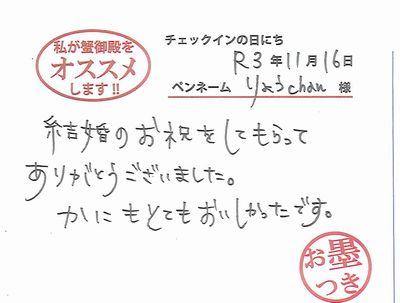 私が蟹御殿を
オススメ
します!!
チェックインの日にち
R3年11月16日
ペンネーム りょうchan 様
結婚のお祝をしてもらって
ありがとうございました。
かにもとてもおいしかったです。
お墨
つき